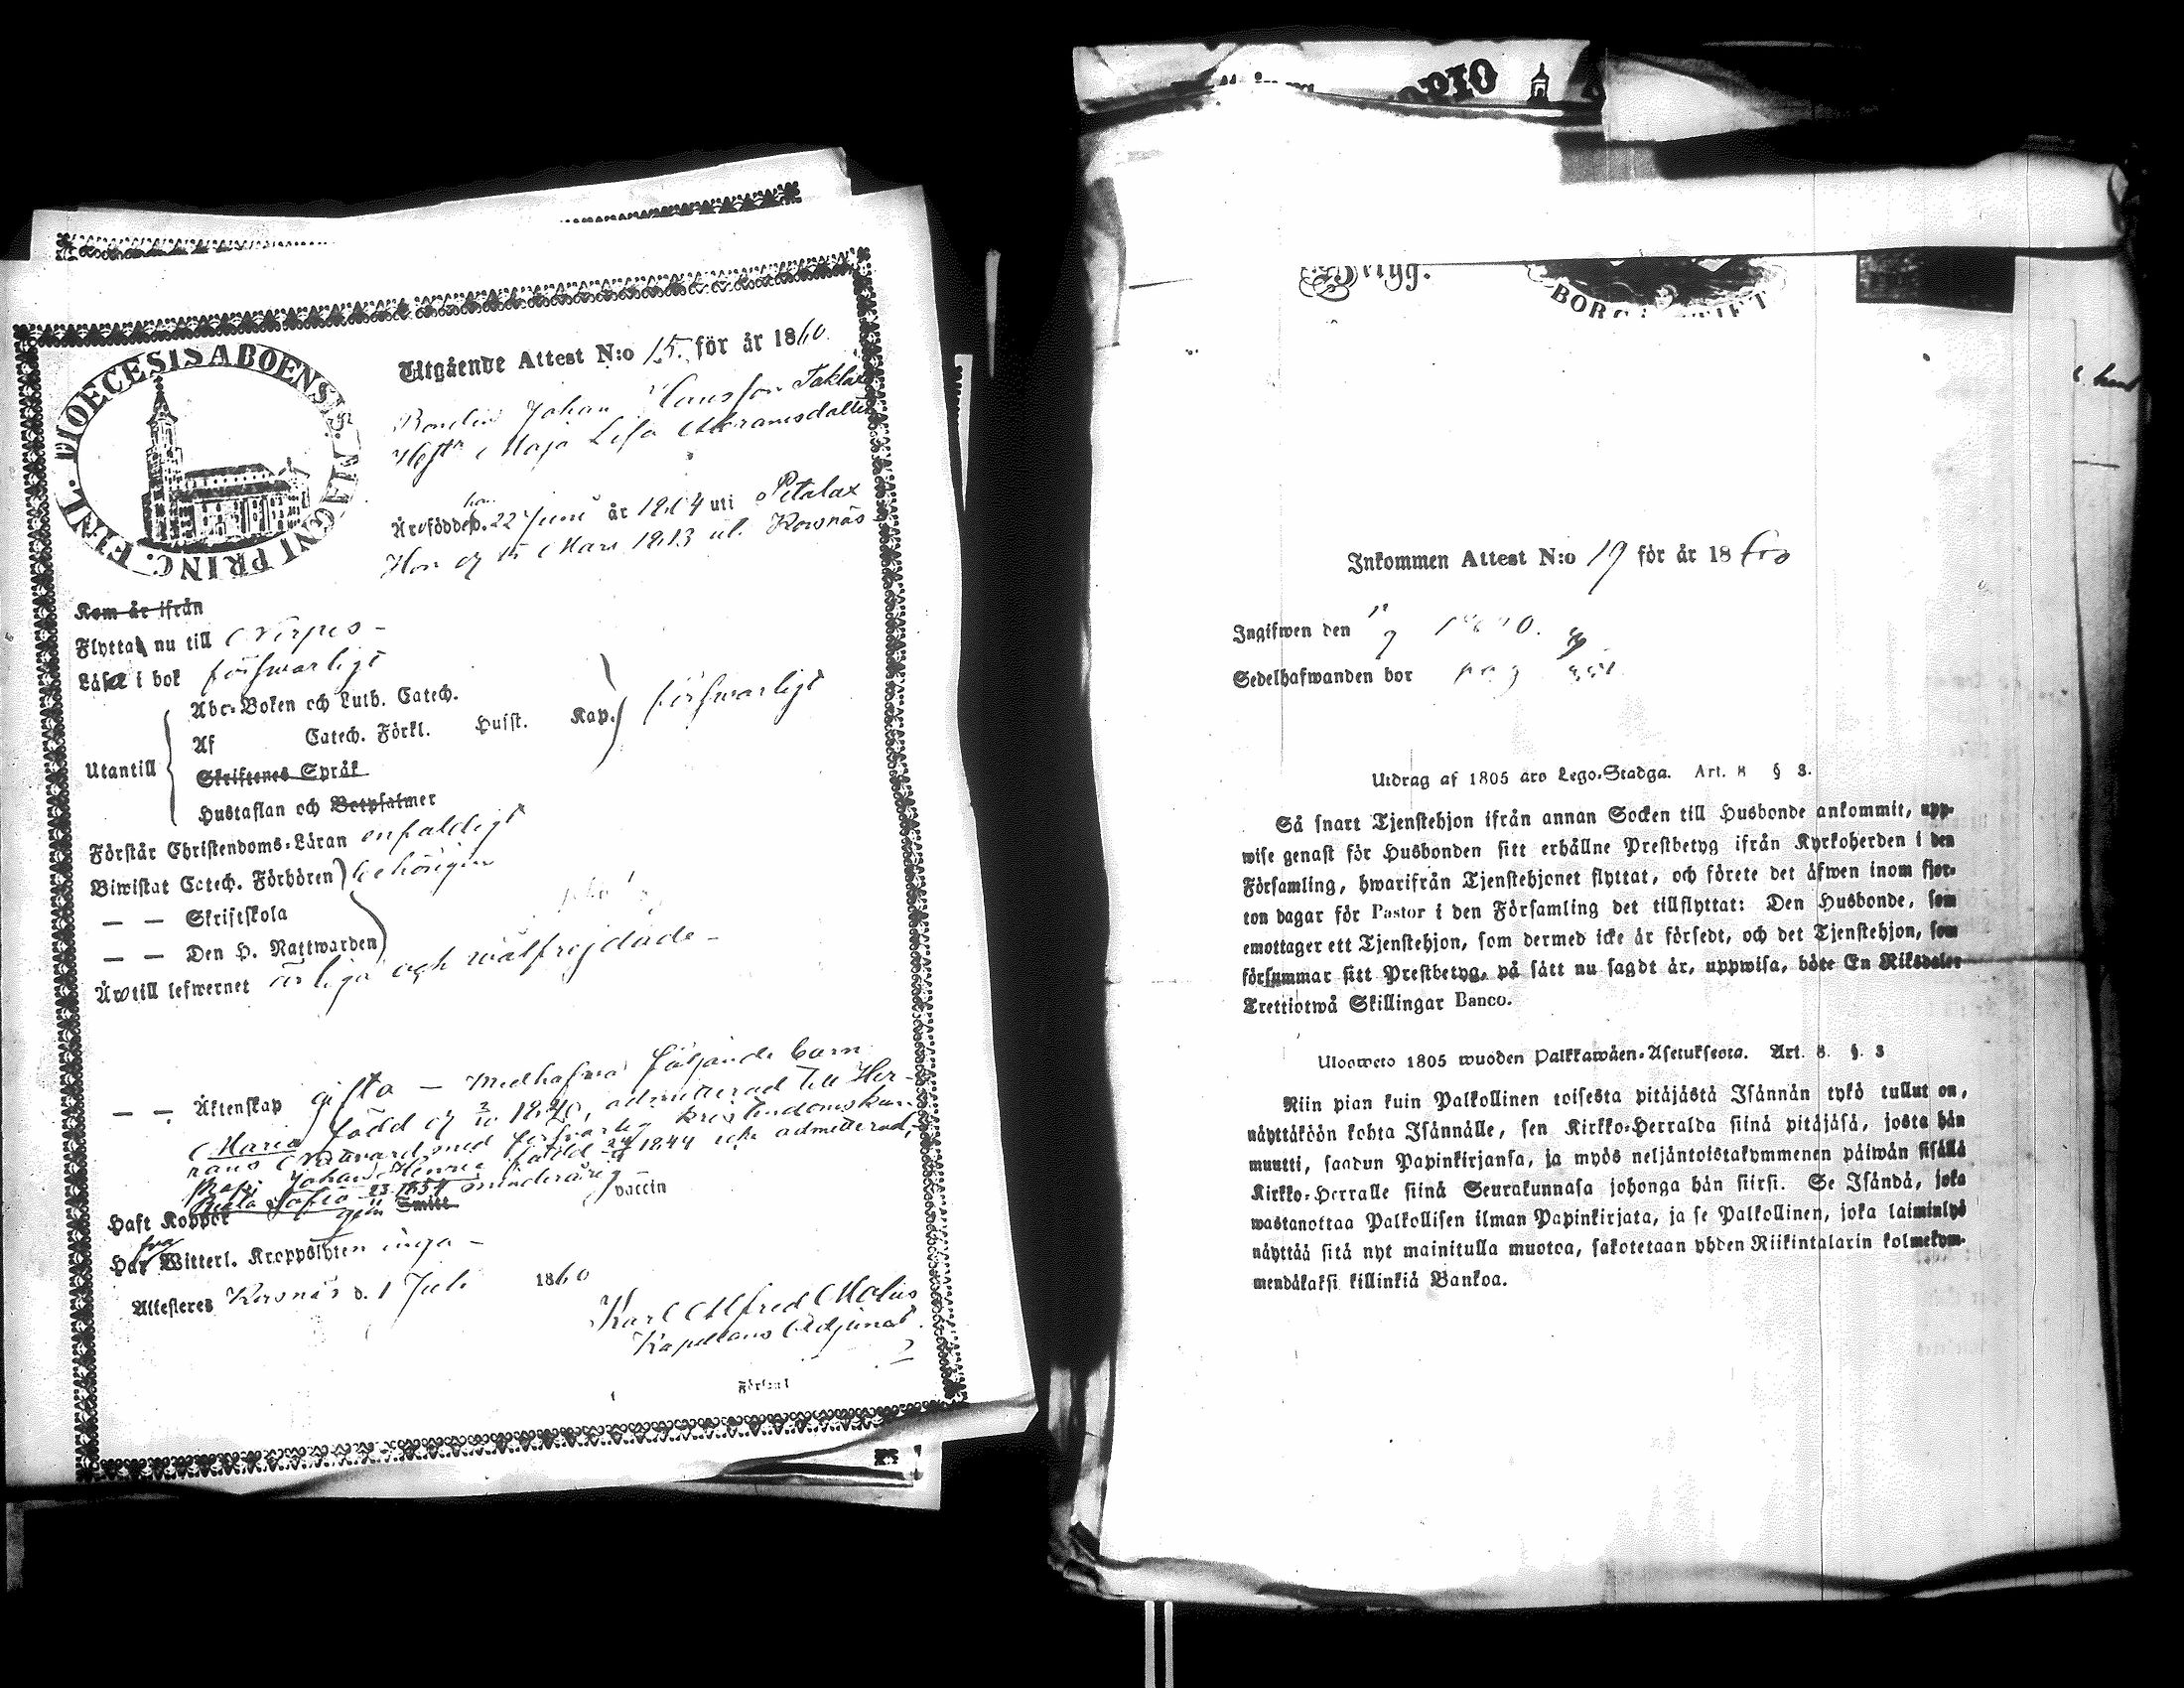 DIOECESIS ABOENSIS. MAGNI PRINC. FINL.
Utgående Attest N:o 15. för år 1860.
Bonden Johan Hansson Taklax
Hust. Maja Lisa Abramsdotter
han
Äro födde d. 22 Juni år 1804 uti Petalax
Hon d. 15 Mars 1813 i Korsnäs
Kom år ifrån
Flytta nu till Nerpes
Läsa i bok försvarligt
Abc-Boken och Luth. Catech.
Utantill Af Catech. Förkl. Husst. Kap. försvarligt
Skriftenes Språk
Hustaflan och Botpsalmer
Förstår Christendoms-Läran enfaldigt
Biwistat Catech. Förhören behörigen
— — Skriftskola
— — Den H. Nattwarden
Äro till lefwernet ärliga och wälfrejdade
— — Äktenskap gifta — Medhafva följande barn
Maria född 1840, admitterad till Her-
rans Nattvard med försvarlig kristendomskun-
Johan Henric född 1844 icke admitterad,
Sofia 23 minderårig
Haft Koppor gm Smitt vaccin
Har Witterl. Kroppslyten inga
Attesteres Korsnäs d. 1 Juli 1860
Karl Alfred
Kapellans Adjunct
OPIO
BORGÅ STIFT
Inkommen Attest N:o 19 för år 18
Ingifwen den
Sedelhafwanden bor pag
Utdrag af 1805 års Lego-Stadga. Art. 8 § 3.
Så snart Tjenstehjon ifrån annan Socken till Husbonde ankommit, upp-
wise genast för Husbonden sitt erhållne Prestbetyg ifrån Kyrkoherden i den
Församling, hwarifrån Tjenstehjonet flyttat, och förete det äfwen inom fjor-
ton dagar för Pastor i den Församling det tillflyttat: Den Husbonde, som
emottager ett Tjenstehjon, som dermed icke är försedt, och det Tjenstehjon, som
försummar sitt Prestbetyg, på sätt nu sagdt är, uppwisa, böte En Riksdaler
Trettiotwå Skillingar Banco.
Ulosweto 1805 wuoden Palkkawäen-Asetuksesta. Art. 8. §. 3
Niin pian kuin Palkollinen toisesta pitäjästä Isännän tykö tullut on,
näyttäköön kohta Isännälle, sen Kirkko-Herralda siinä pitäjäsä, josta hän
muutti, saadun Papinkirjansa, ja myös neljäntoistakymmenen päiwän sisällä
Kirkko-Herralle siinä Seurakunnasa johonga hän siirsi. Se Isändä, joka
wastanottaa Palkollisen ilman Papinkirjata, ja se Palkollinen, joka laiminlyö
näyttää sitä nyt mainitulla muotoa, sakotetaan yhden Riikintalarin kolmekym-
mendäkaksi killinkiä Bankoa.